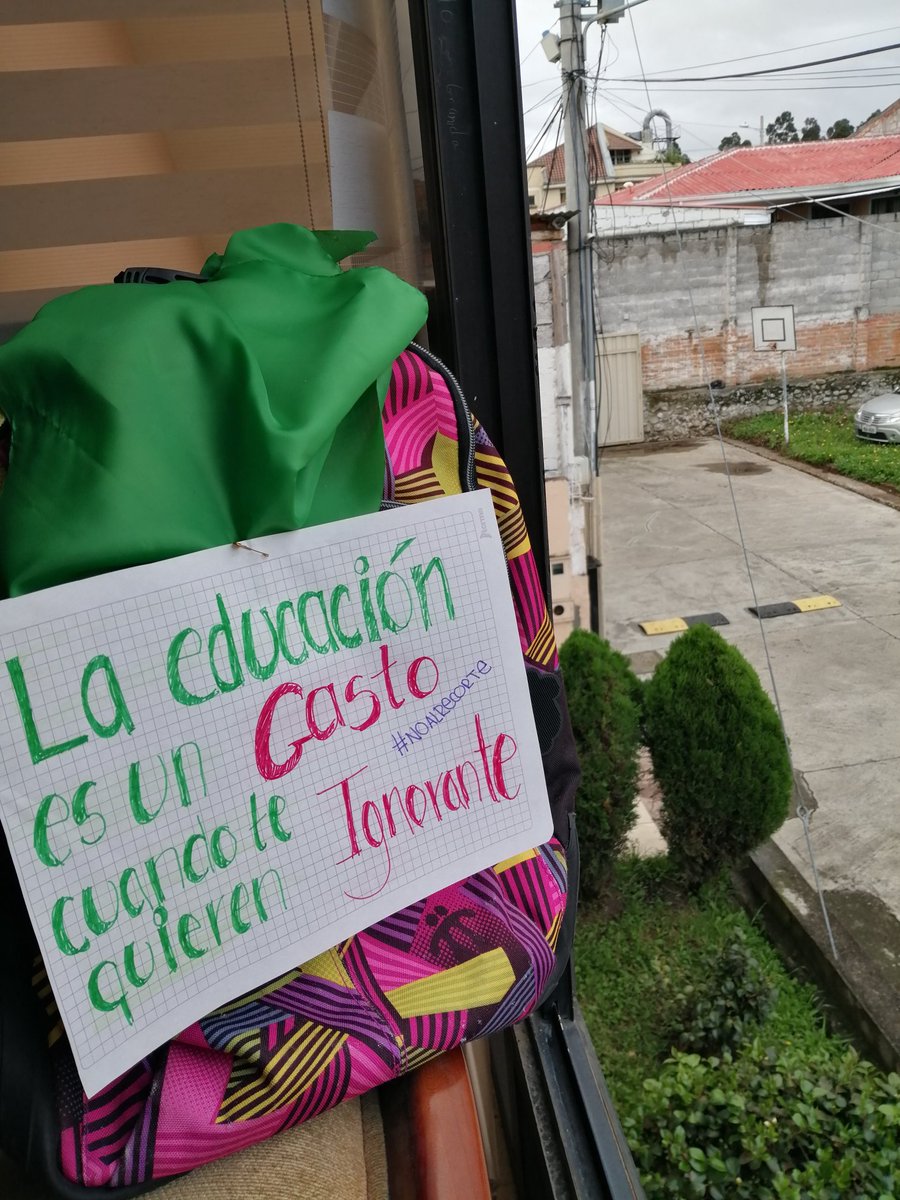 La educación
es un Gasto
#NOALRECORTE
cuando te
quieren Ignorante